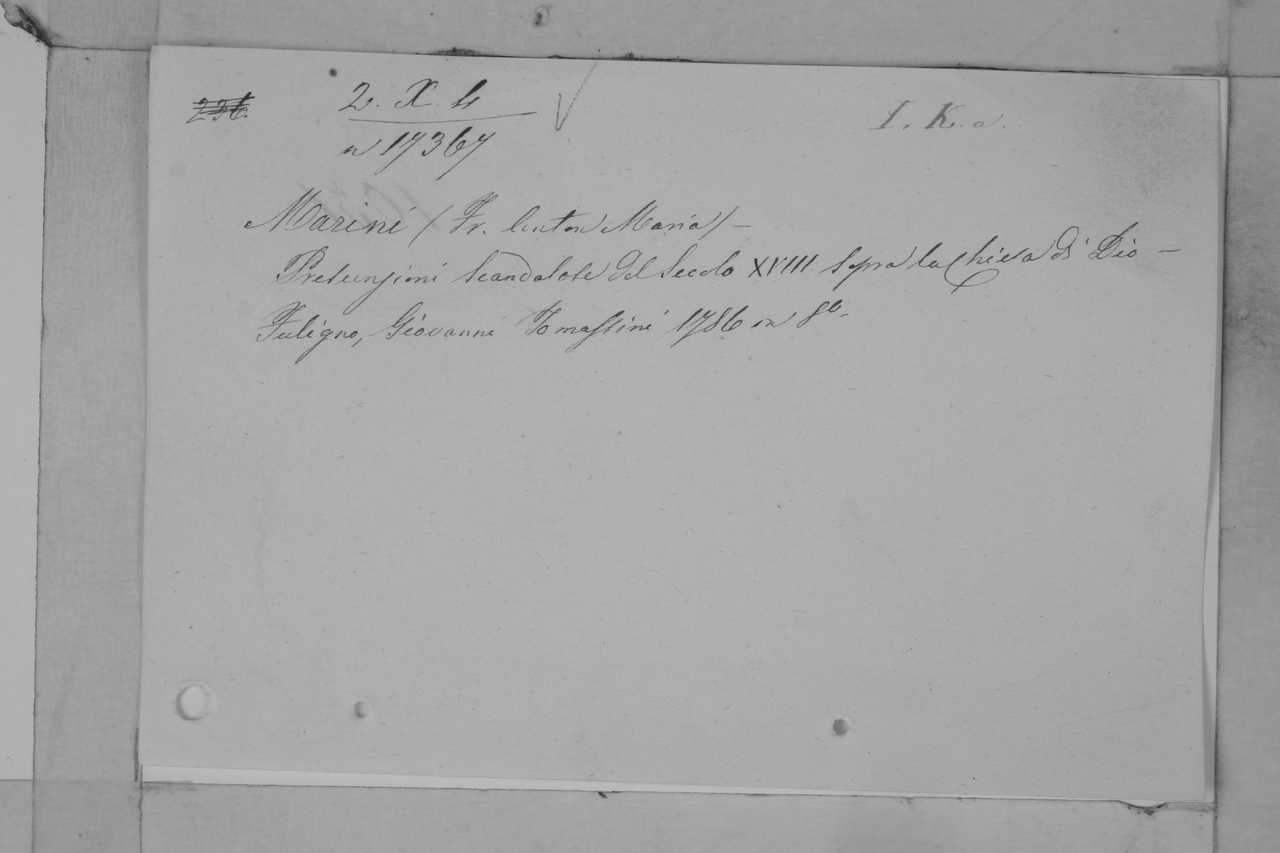 236.
2. X. 4
n 17367
I. K. a.
Marini (Fr. Anton Maria) —
Presunzioni scandalose del Secolo XVIII sopra la Chiesa di Dio —
Fuligno, Giovanni Tomassini 1786 in 8º.